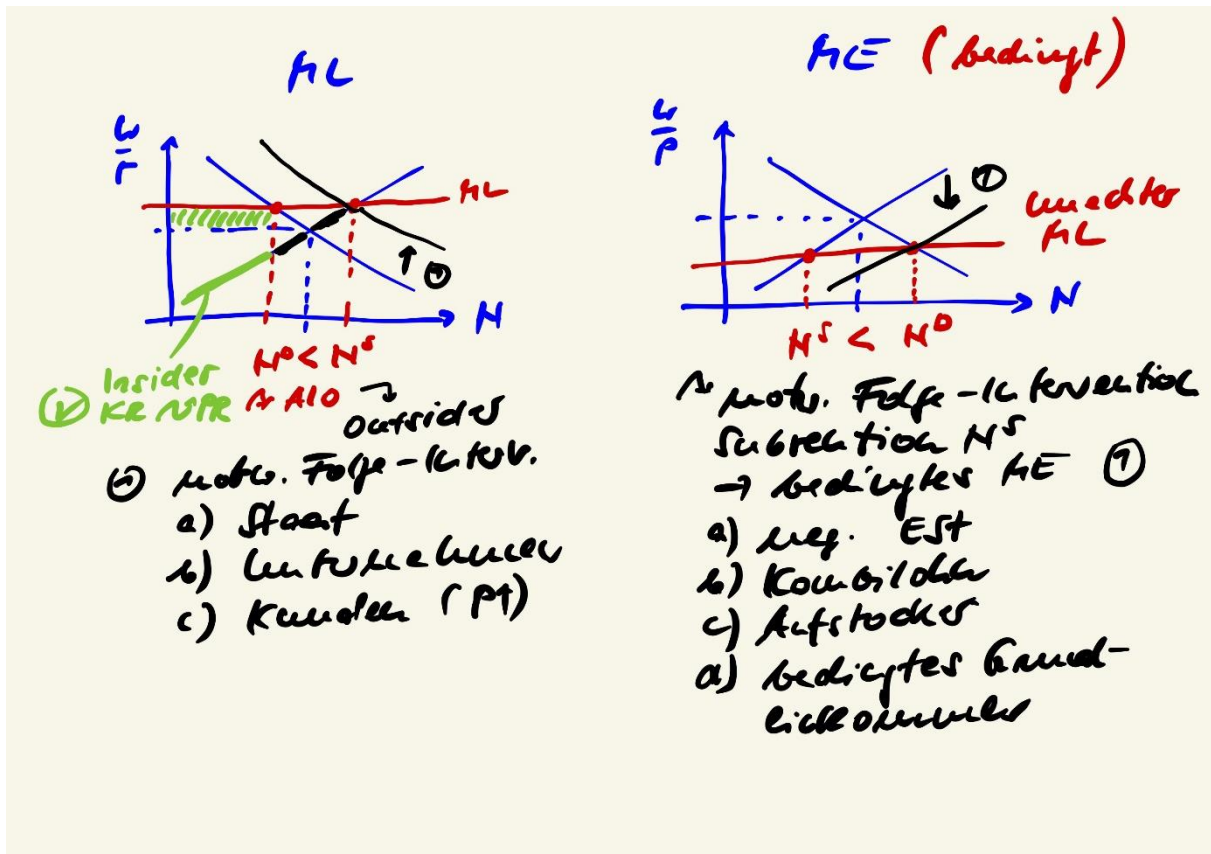 ML
W/P
ML
N
N^D < N^S
↷ Alo
→ Outsider
Insider
KR
notw. Folge-Interv.
a) Staat
b) Unternehmer
c) Kunden (P↑)
ME (bedingt)
W/P
①
unechter
ML
N
N^S < N^D
↷ notw. Folge-Intervention
Subvention N^S
→ bedingtes ME ①
a) neg. ESt
b) Kombilohn
c) Aufstocker
d) bedingtes Grund-
einkommen